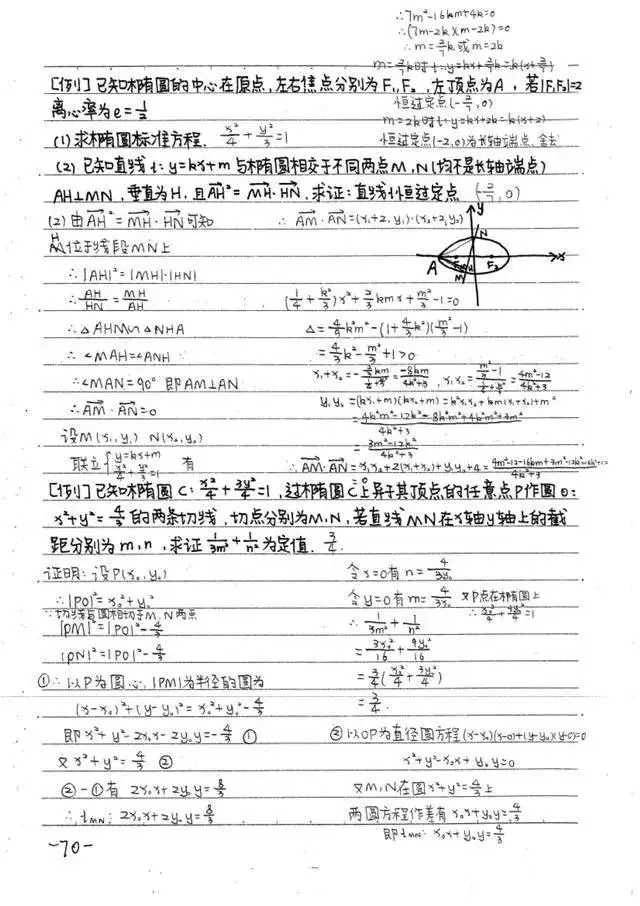 ∴7m²-16km+4k²=0
∴(7m-2k)(m-2k)=0
∴m=2/7k或m=2k
m=2/7k时 l:y=kx+2/7k=k(x+2/7)
[例]已知椭圆的中心在原点,左右焦点分别为F₁,F₂,左顶点为A,若|F₁F₂|=2
恒过定点(-2/7,0)
离心率为e=1/2
m=2k时 l:y=kx+2k=k(x+2)
(1)求椭圆标准方程. x²/4+y²/3=1
恒过定点(-2,0)为长轴端点,舍去
(2)已知直线l:y=kx+m与椭圆相交于不同两点M,N(均不是长轴端点)
AH⊥MN,垂直为H,且AH²=MH·HN,求证:直线l恒过定点 (-2/7,0)
(2)由AH²=MH·HN可知
H位于线段MN上
∴|AH|²=|MH|·|HN|
∴AH/HN=MH/AH
∴△AHM∽△NHA
∴∠MAH=∠ANH
∴∠MAN=90° 即AM⊥AN
∴AM·AN=0
设M(x₁,y₁) N(x₂,y₂)
联立{y=kx+m x²/4+y²/3=1 有
∴AM·AN=(x₁+2,y₁)·(x₂+2,y₂)
y
N
A F₁ H F₂ x
M
(1/4+k²/3)x²+2/3kmx+m²/3-1=0
△=4/9k²m²-(1+4/3k²)(m²/3-1)
=4/3k²-m²/3+1>0
x₁+x₂=-(2/3km)/(1/4+k²/3)=-8km/(4k²+3), x₁x₂=(m²/3-1)/(1/4+k²/3)=(4m²-12)/(4k²+3)
y₁y₂=(kx₁+m)(kx₂+m)=k²x₁x₂+km(x₁+x₂)+m²
=(4k²m²-12k²-8k²m²+4k²m²+3m²)/(4k²+3)
=(3m²-12k²)/(4k²+3)
∴AM·AN=x₁x₂+2(x₁+x₂)+y₁y₂+4=(4m²-12-16km+3m²-12k²+16k²+12)/(4k²+3)
=0
[例]已知椭圆C:x²/4+3y²/4=1,过椭圆C上异于其顶点的任意点P作圆O:
x²+y²=4/3的两条切线,切点分别为M,N,若直线MN在x轴y轴上的截
距分别为m,n,求证1/3m²+1/n²为定值. 3/4.
证明:设P(x₀,y₀)
∴|PO|²=x₀²+y₀²
∵切线与圆相切于M,N两点
|PM|²=|PO|²-4/3
|PN|²=|PO|²-4/3
①∴以P为圆心,|PM|为半径的圆为
(x-x₀)²+(y-y₀)²=x₀²+y₀²-4/3
即x²+y²-2x₀x-2y₀y=-4/3 ①
又x²+y²=4/3 ②
②-①有 2x₀x+2y₀y=8/3
∴lMN:2x₀x+2y₀y=8/3
令x=0有n=4/3y₀
令y=0有m=4/3x₀ 又P点在椭圆上
∴x₀²/4+3y₀²/4=1
∴1/3m²+1/n²
=3x₀²/16+9y₀²/16
=3/4(x₀²/4+3y₀²/4)
=3/4.
②以OP为直径圆方程(x-x₀)(x-0)+(y-y₀)(y-0)=0
x²+y²-x₀x+y₀y=0
又M,N在圆x²+y²=4/3上
两圆方程作差有x₀x+y₀y=4/3
即lMN:x₀x+y₀y=4/3
-70-